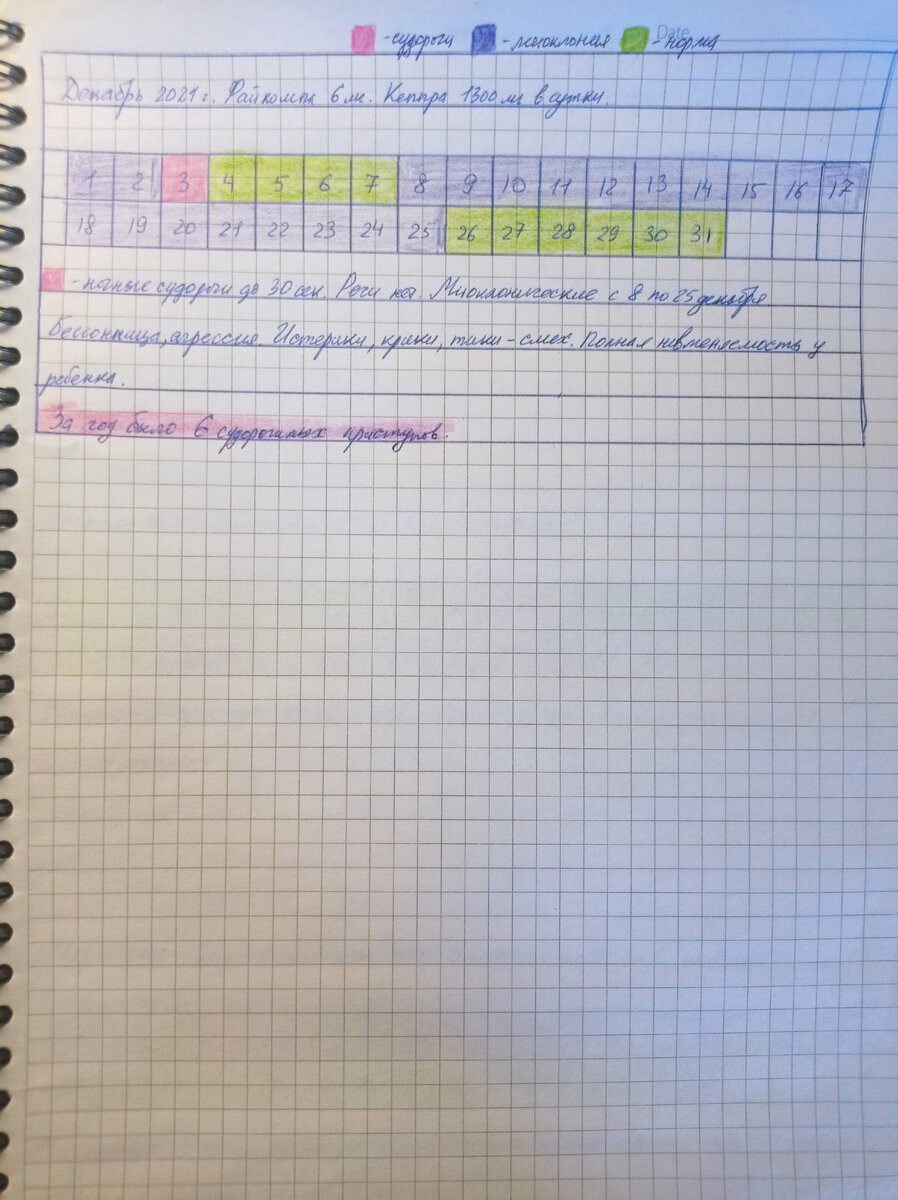 - судороги - миоклония - норма
Date
Декабрь 2021 г. Файкомпа 6 мг. Кеппра 1300 мг в сутки.
1 2 3 4 5 6 7 8 9 10 11 12 13 14 15 16 17
18 19 20 21 22 23 24 25 26 27 28 29 30 31
- ночные судороги до 30 сек. Речи нет. Миоклонические с 8 по 25 декабря
бессонница, агрессия. Истерики, крики, тики - смех. Полная невменяемость у
ребенка.
За год было 6 судорожных приступов.